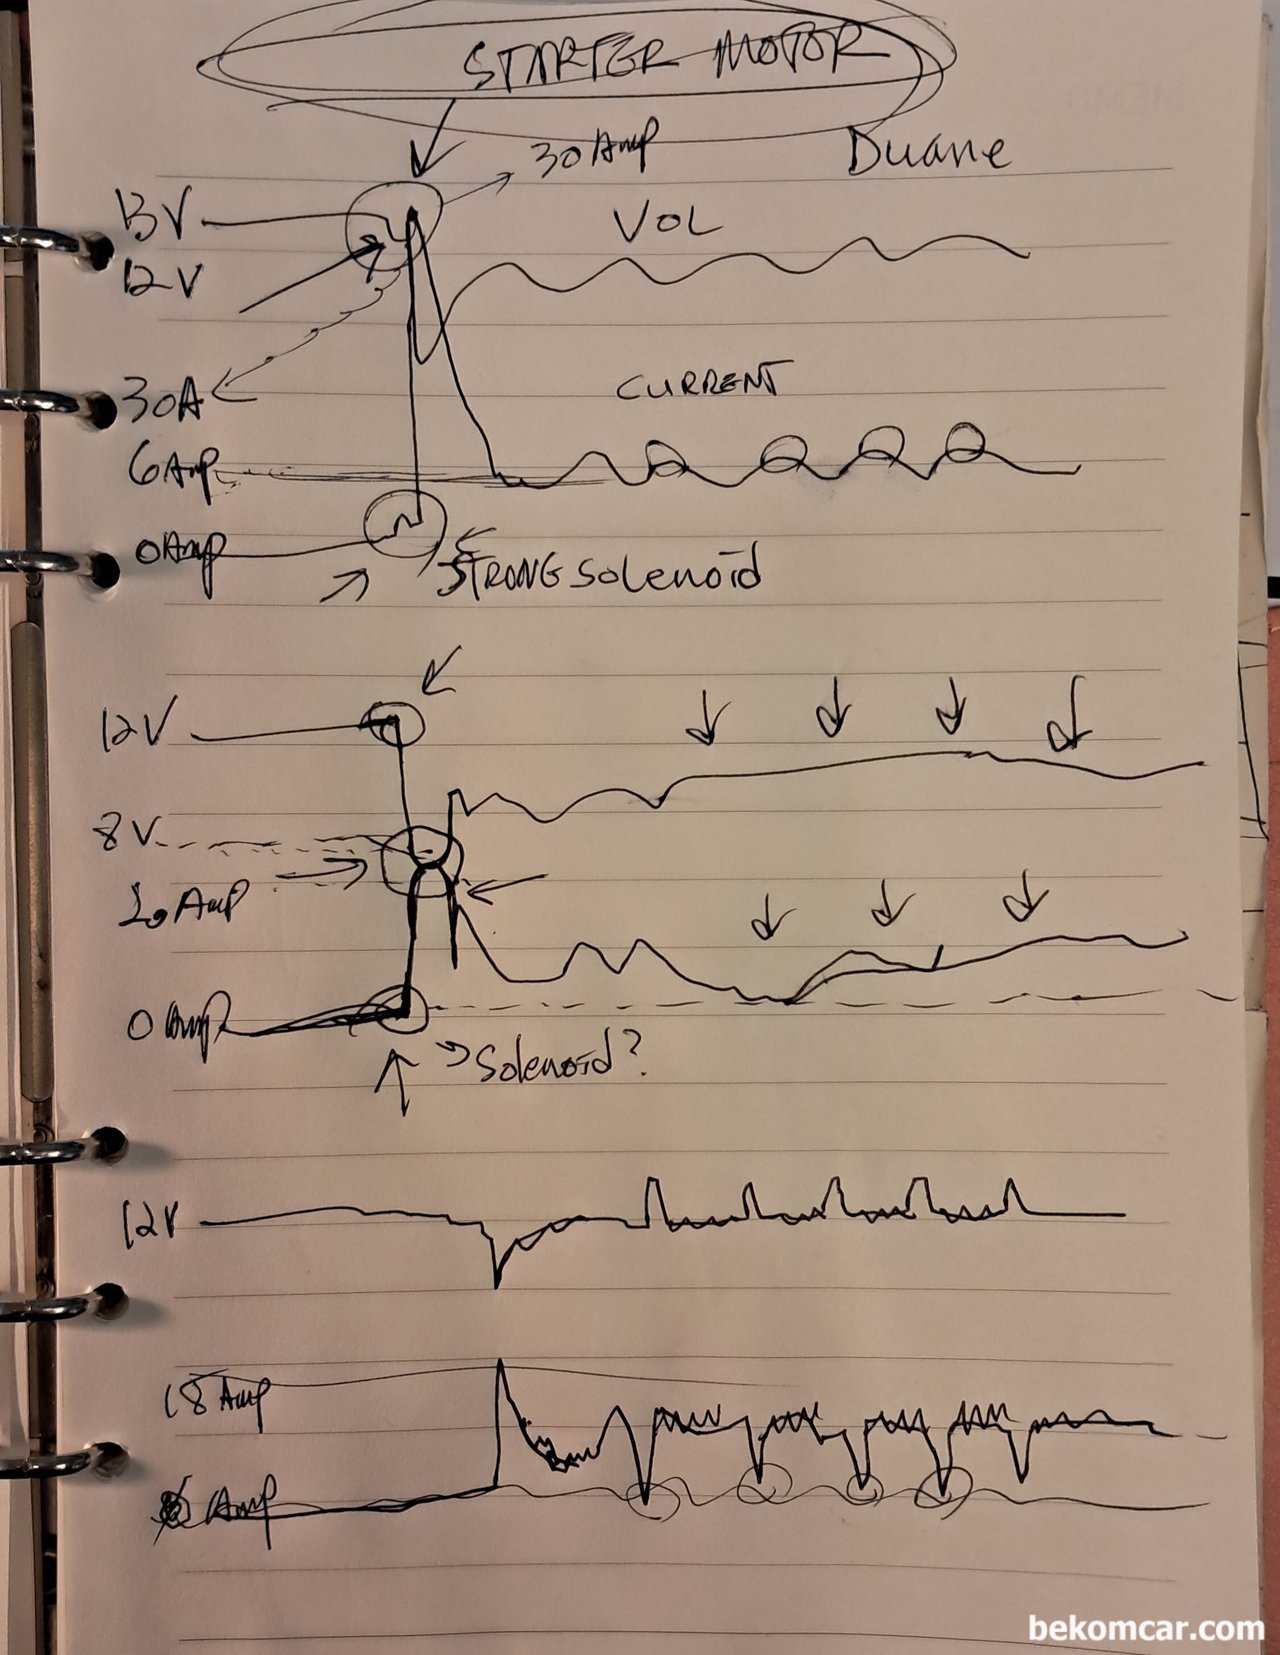 STARTER MOTOR
30 Amp
Duane
13V
VOL
12V
CURRENT
30A
6 Amp
0 Amp
STRONG Solenoid
12V
8V
Amp
0 Amp
Solenoid?
12V
18 Amp
Amp
bekomcar.com